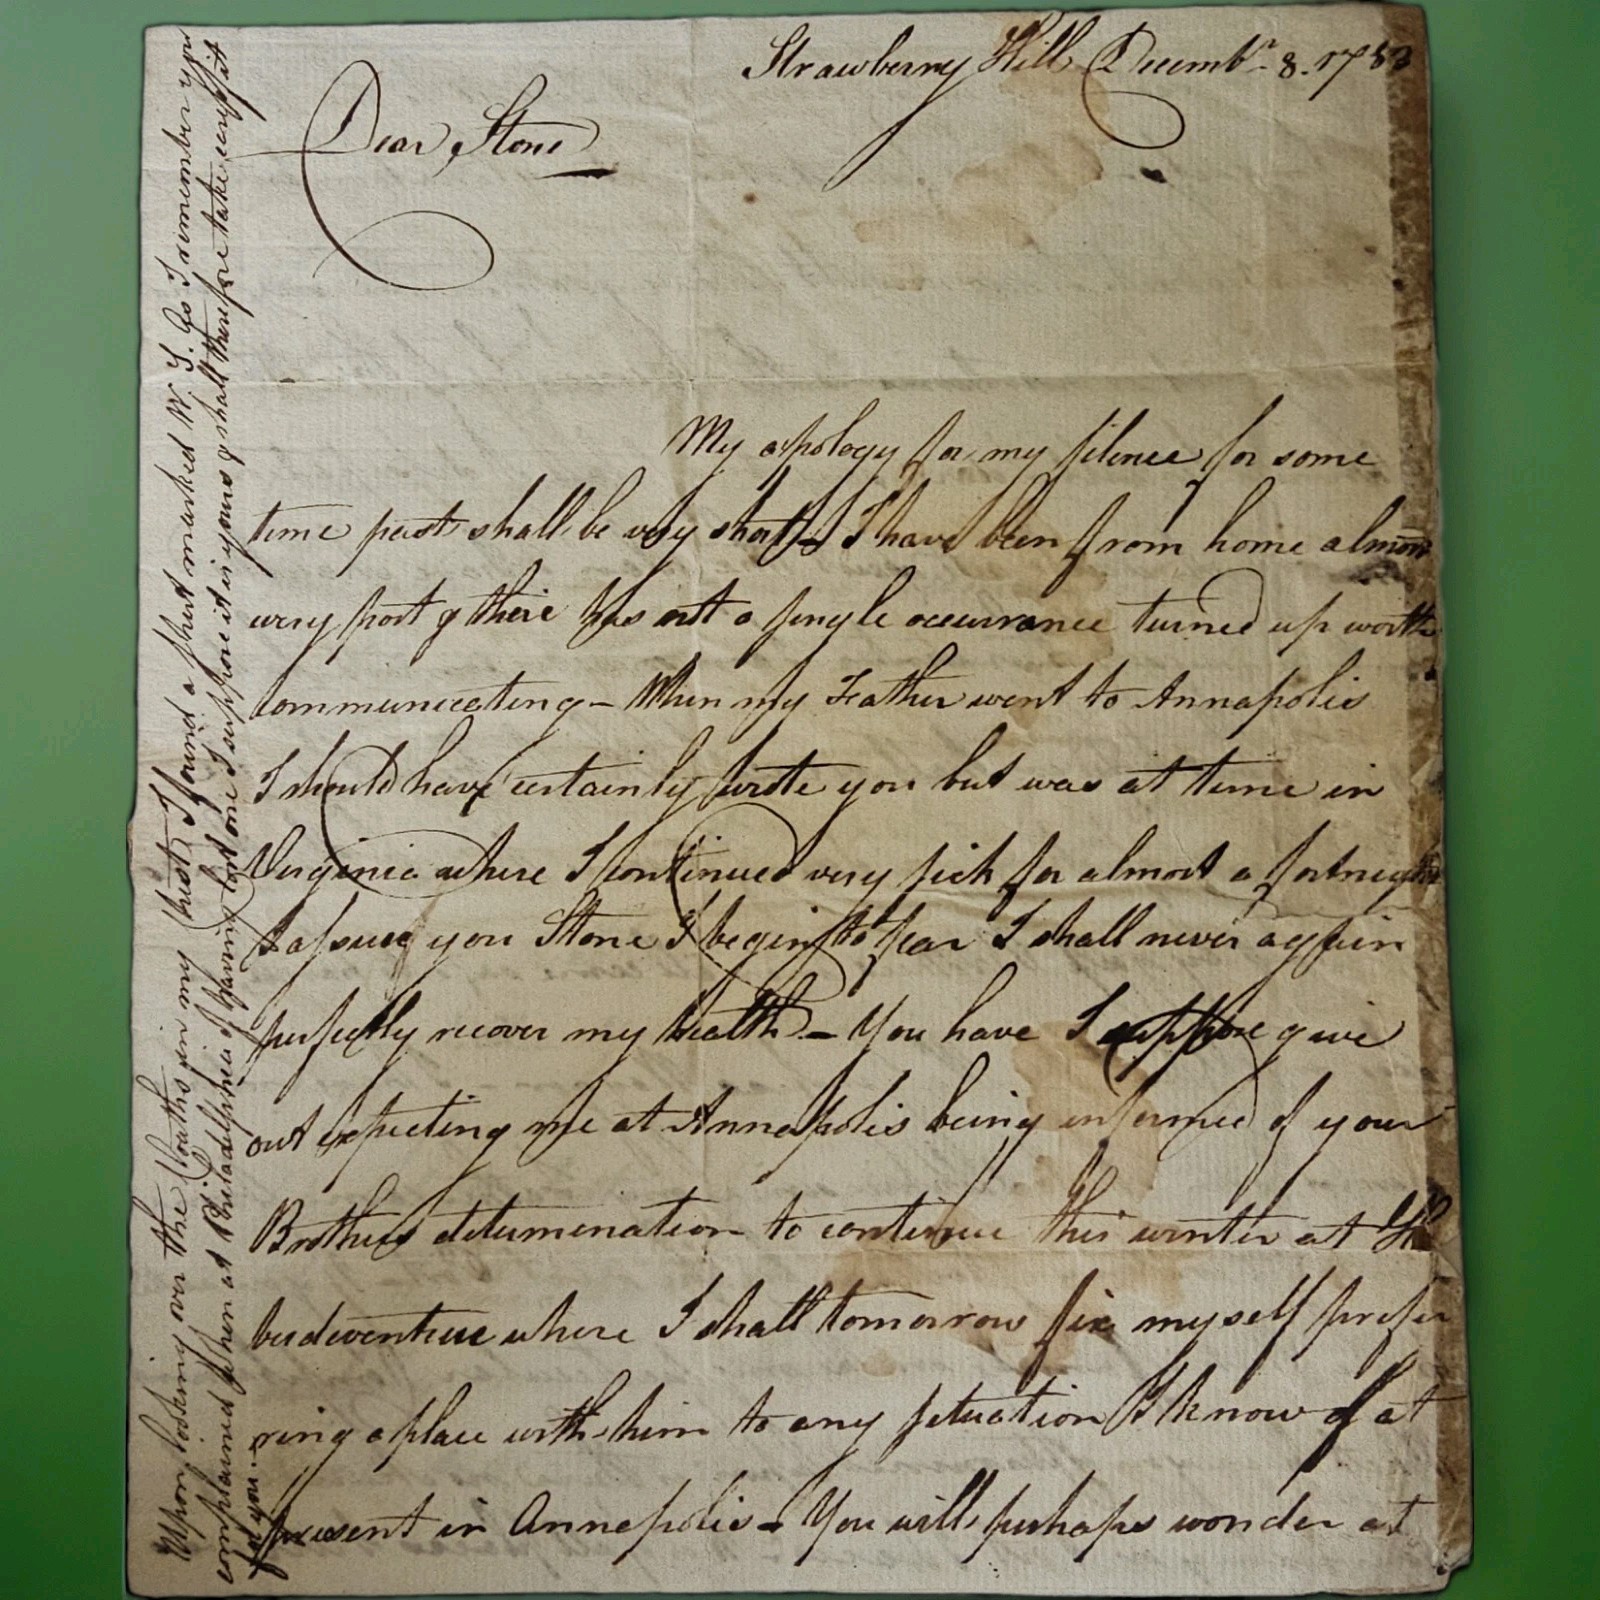 Strawberry Hill Decembr. 8. 1783
Dear Stone
My apology for my silence for some
time past shall be very short – I have been from home almost
every post & there has not a single occurrance turned up worth
communicating – When my Father went to Annapolis
I should have certainly wrote you but was at time in
Virginia where I continued very sick for almost a fortnight
I assure you Stone I begin to fear I shall never again
perfectly recover my health – You have I suppose give
out expecting me at Annapolis being informed of your
Brothers determination to continue this winter at
berdeventure where I shall tomorrow fix myself prefer
ring a place with him to any situation I know of at
present in Annapolis – You will perhaps wonder at
Upon looking over the Cloaths in my trust I found a shirt marked W. S. As I remember you
complained when at Philadelphia of having lost one I suppose it is yours & shall therefore take care of it
for you –